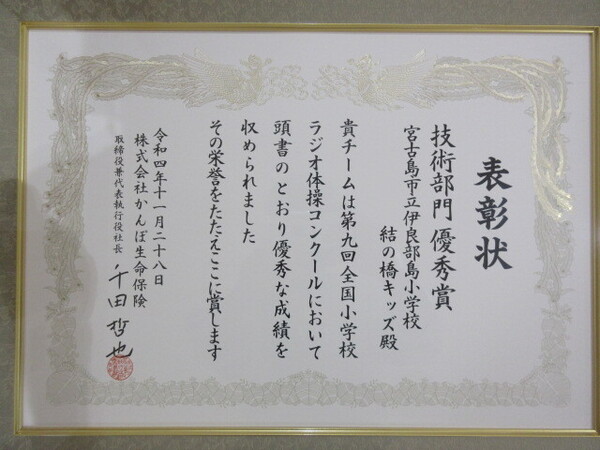 表彰状
技術部門 優秀賞
宮古島市立伊良部島小学校
結の橋キッズ殿
貴チームは第九回全国小学校
ラジオ体操コンクールにおいて
頭書のとおり優秀な成績を
収められました
その栄誉をたたえここに賞します
令和四年十一月二十八日
株式会社かんぽ生命保険
取締役兼代表執行役社長
千田哲也